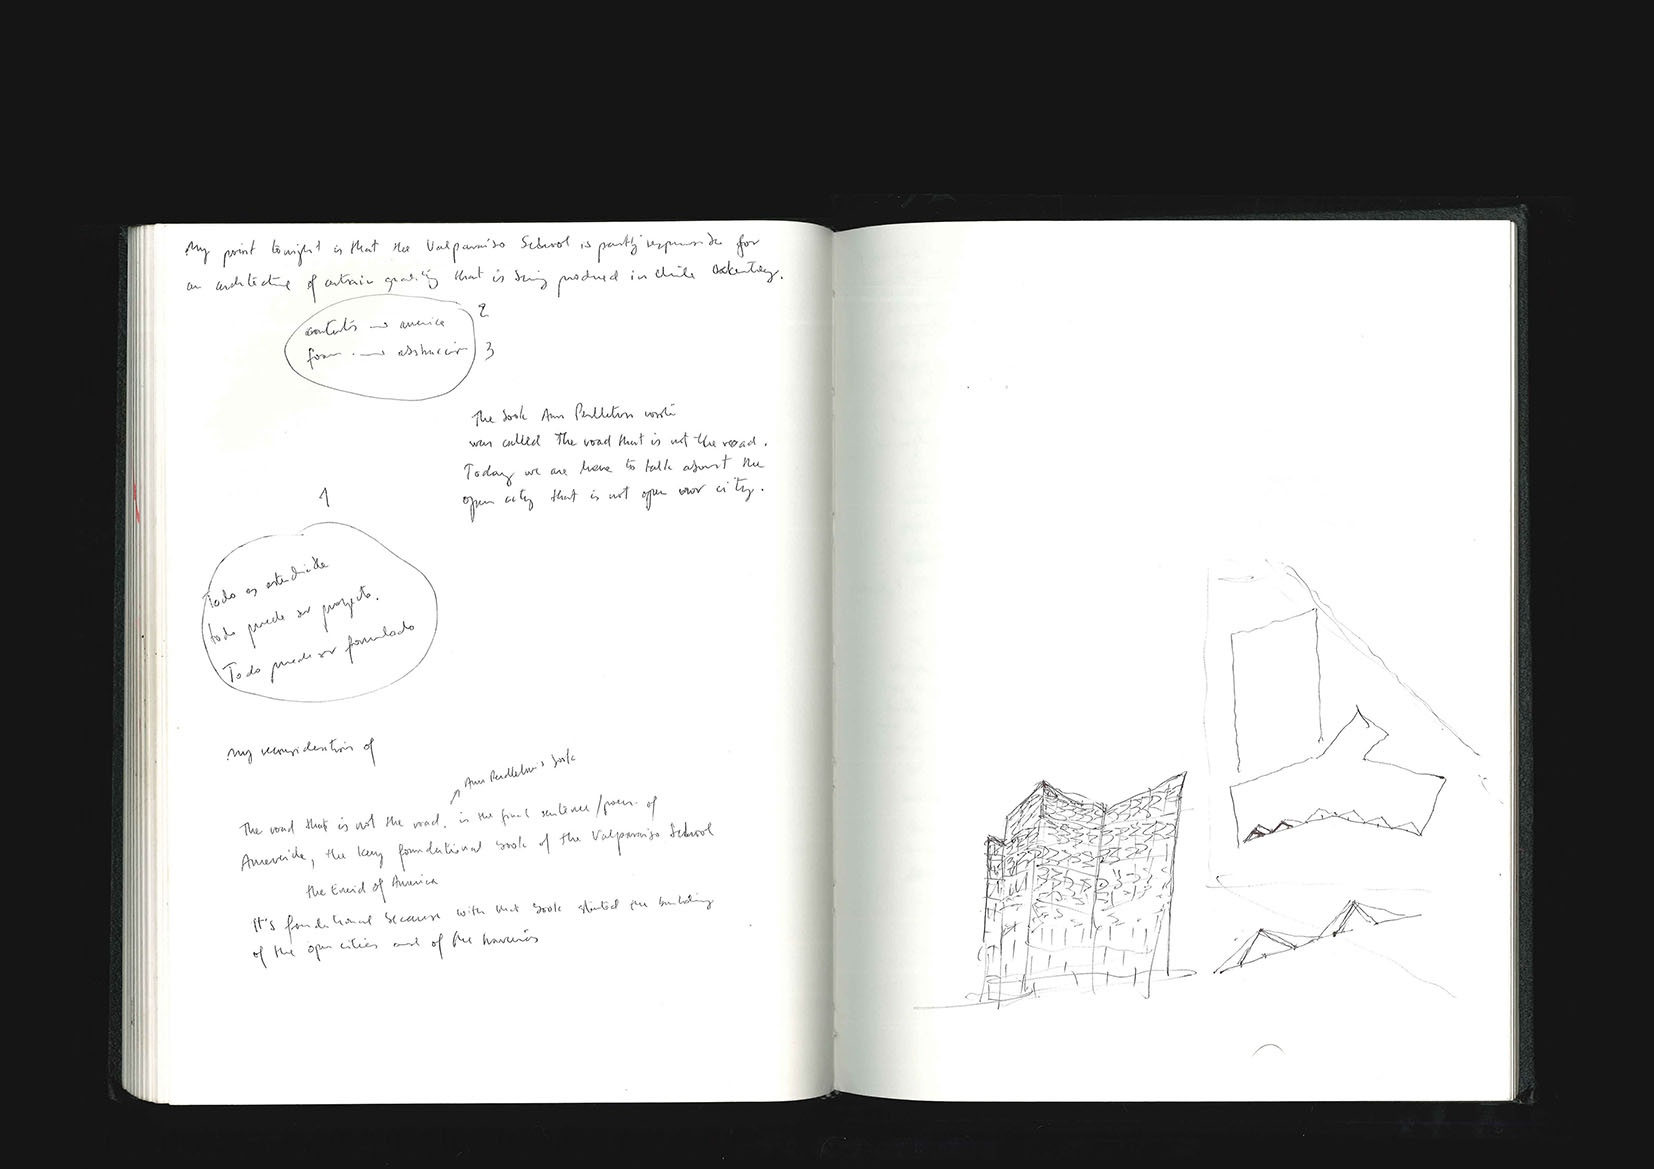 My point tonight is that the Valparaíso School is partly responsible for
an architecture of certain quality that is being produced in Chile
america 2
form abstracción 3
The book Ann Pendleton wrote
was called The road that is not the road.
Today we are here to talk about the
open city that is not open nor city.
1
Todo es
todo puede ser proyecto.
Todo puede ser formulado
My reconsideration of
Ann Pendleton's book
The road that is not the road. is the final sentence/poem of
Amereida, the key foundational book of the Valparaíso School
the Eneid of America
It's foundational because with that book started the building
of the open cities and of the travesías